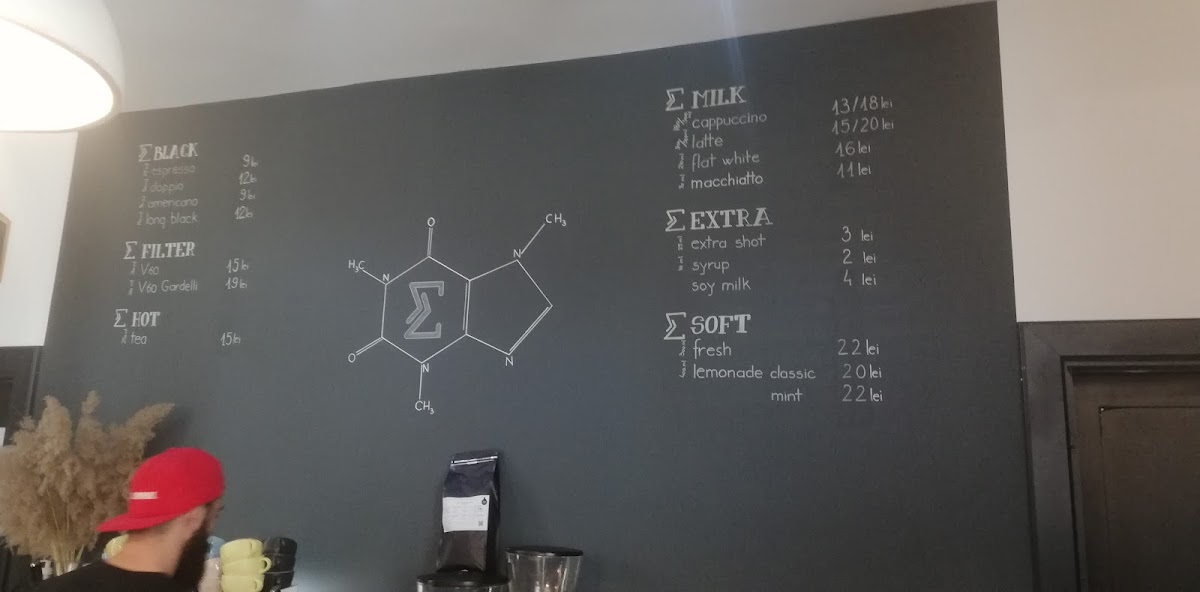 Σ BLACK
espresso 9lei
doppio 12lei
americano 9lei
long black 12lei
Σ FILTER
V60 15lei
V60 Gardelli 19lei
Σ HOT
tea 15lei
O
CH₃
H₃C
N
N
Σ
O
N
N
CH₃
Σ MILK
cappuccino 13/18lei
latte 15/20lei
flat white 16lei
macchiatto 11lei
Σ EXTRA
extra shot 3 lei
syrup 2 lei
soy milk 4 lei
Σ SOFT
fresh 22lei
lemonade classic 20lei
mint 22lei